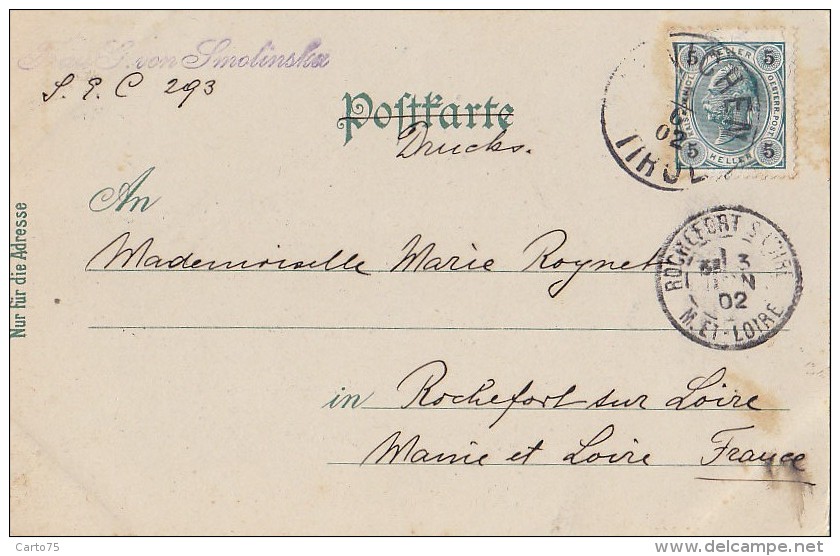 Frau S. von Smolinska
S. P. C 293
Postkarte
Drucks.
An
Mademoiselle Marie Roynet
in Rochefort sur Loire
Maine et Loire France
Nur für die Adresse
5 HELLER 5
KAIS. KÖNIGL. OESTERR. POST
5 HELLER 5
TIROL
02
ROCHEFORT S LOIRE
3
02
M. ET-LOIRE
Carto75
www.delcampe.net